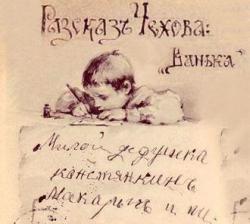 Разсказъ Чехова:
„Ванька“
Милой дедушка
канстянкинъ
Макарычъ и пи.